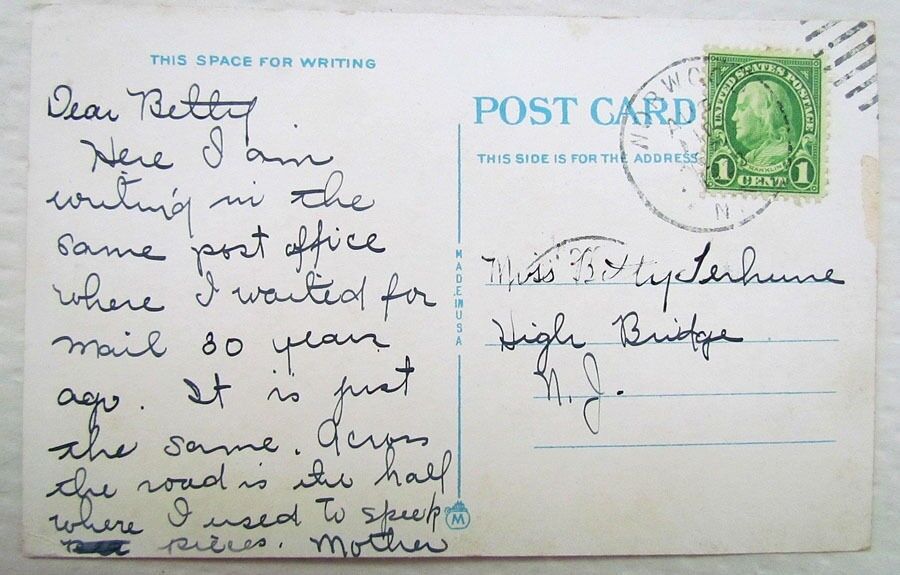 THIS SPACE FOR WRITING
Dear Betty
Here I am
writing in the
same post office
where I waited for
mail 30 years
ago. It is just
the same. Across
the road is the hall
where I used to speek
pieces. Mother
POST CARD
THIS SIDE IS FOR THE ADDRESS
MADE IN USA
M
UNITED STATES POSTAGE
FRANKLIN
1 CENT 1
Miss Betty Terhune
High Bridge
N. J.